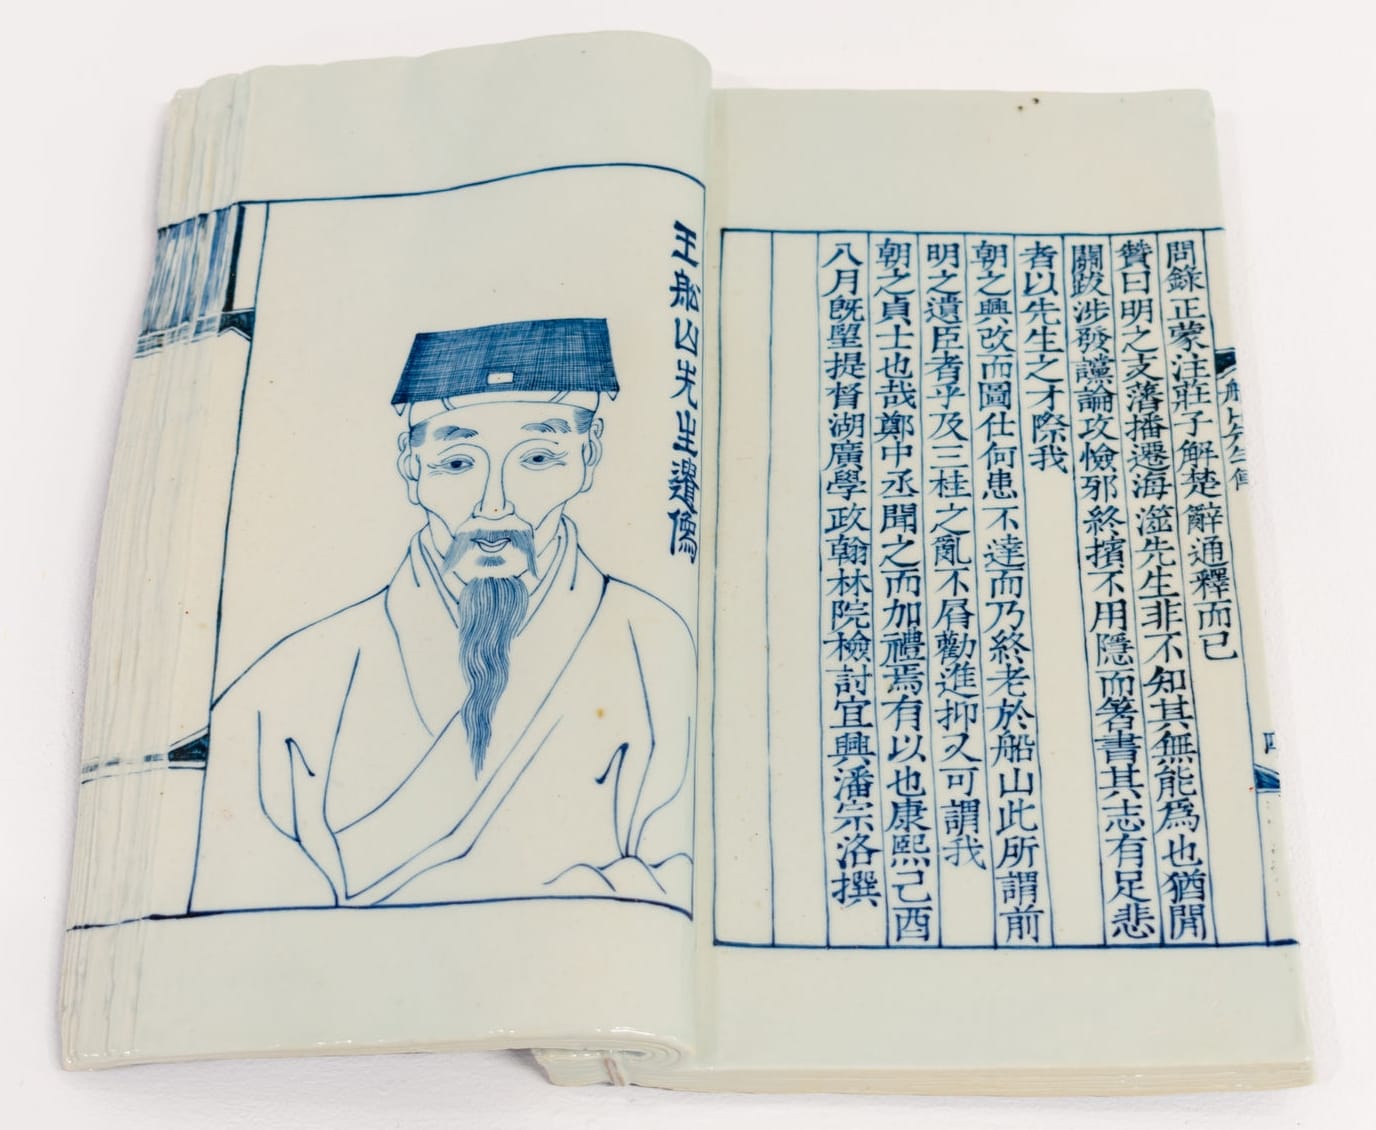 船山先生傳
四
問錄正蒙注莊子解楚辭通釋而已
贊曰明之支藩播遷海澨先生非不知其無能爲也猶閒
關跋涉發讜論攻憸邪終擯不用隱而箸書其志有足悲
者以先生之才際我
朝之興改而圖仕何患不達而乃終老於船山此所謂前
明之遺臣者乎及三桂之亂不屑勸進抑又可謂我
朝之貞士也哉鄭中丞聞之而加禮焉有以也康熙己酉
八月旣望提督湖廣學政翰林院檢討宜興潘宗洛撰
王船山先生遺像